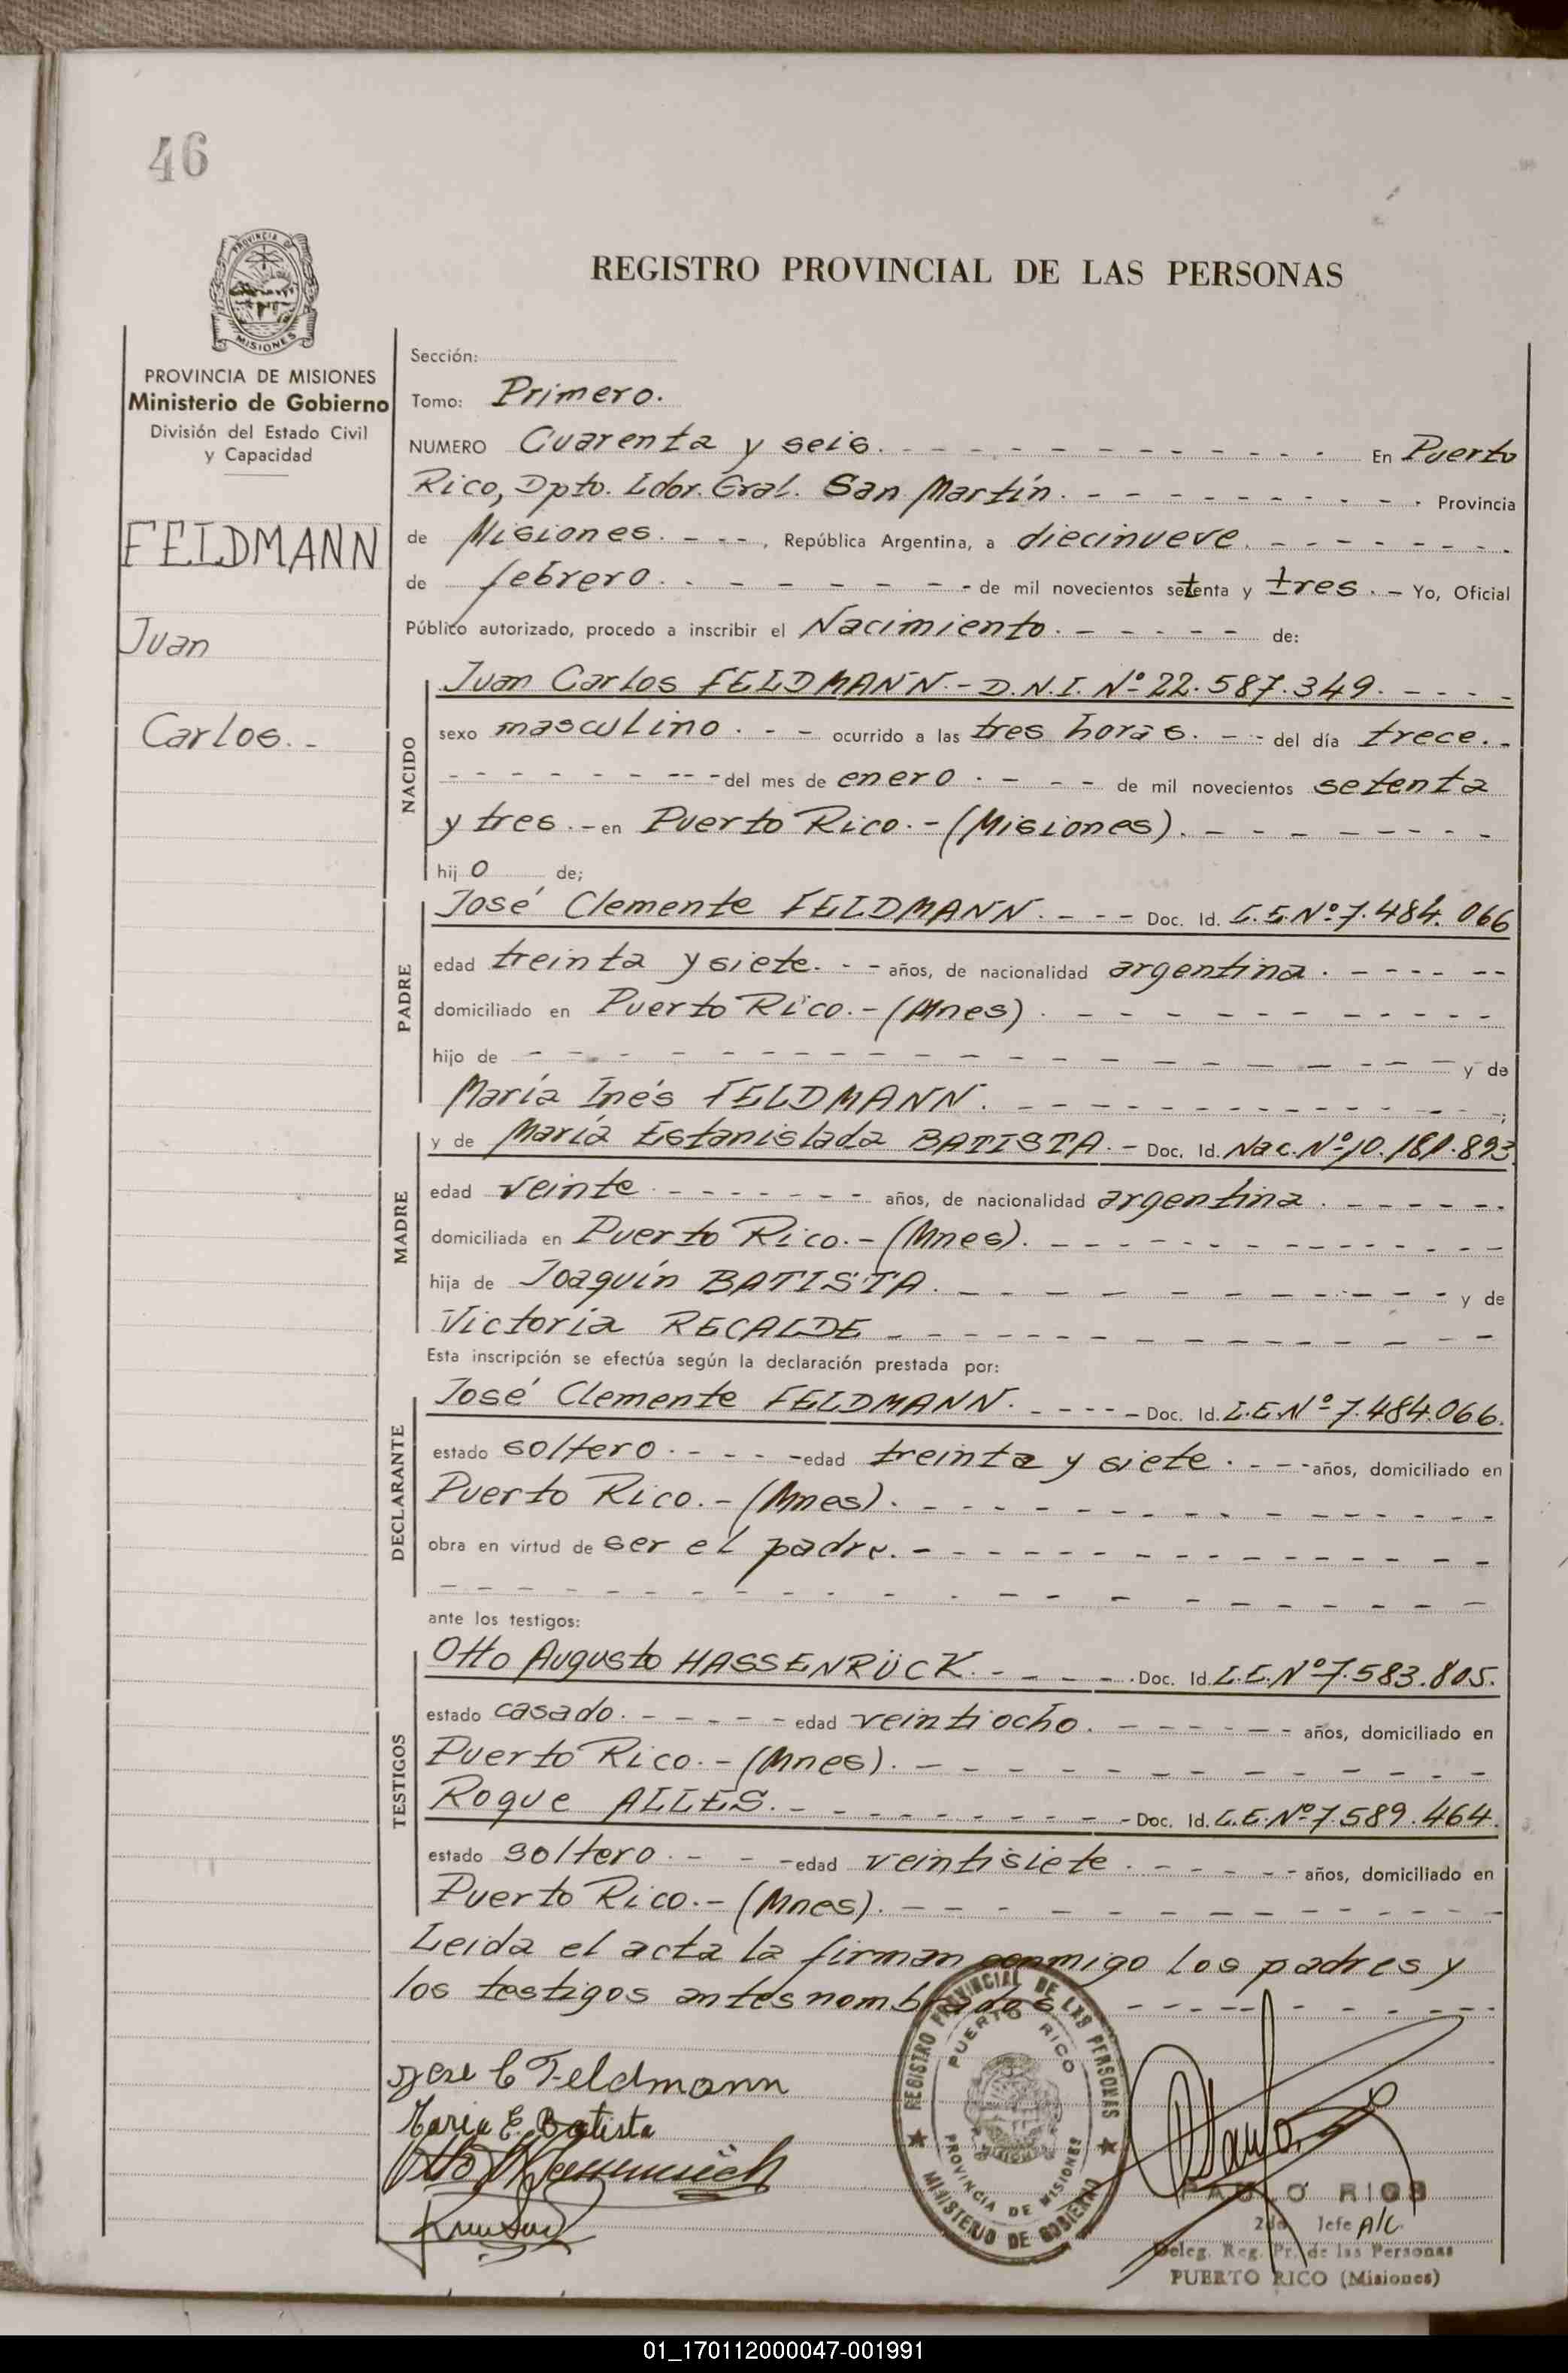 46
PROVINCIA DE
MISIONES
PROVINCIA DE MISIONES
Ministerio de Gobierno
División del Estado Civil
y Capacidad
FELDMANN
Juan
Carlos.-
REGISTRO PROVINCIAL DE LAS PERSONAS
Sección:
Tomo: Primero.
NUMERO Cuarenta y seis. - - - En Puerto
Rico, Dpto. Ldor. Gral. San Martín. - - - Provincia
de Misiones. - - - , República Argentina, a diecinueve. - - -
de febrero. - - - de mil novecientos setenta y tres. - Yo, Oficial
Público autorizado, procedo a inscribir el Nacimiento. - - - de:
NACIDO
Juan Carlos FELDMANN.- D.N.I. Nº 22.587.349. - - -
sexo masculino. - - ocurrido a las tres horas. - - del día trece. -
- - - del mes de enero. - - - de mil novecientos setenta
y tres. - en Puerto Rico.- (Misiones). - - -
hij o de;
PADRE
José Clemente FELDMANN. - - - Doc. Id. L.E.Nº 7.484.066
edad treinta y siete. - - años, de nacionalidad argentina. - - -
domiciliado en Puerto Rico.- (Mnes). - - -
hijo de - - - y de
María Inés FELDMANN. - - - ;
MADRE
y de María Estanislada BATISTA. - Doc. Id. Nac. Nº 10.181.893.
edad veinte - - - años, de nacionalidad argentina. - - -
domiciliada en Puerto Rico.- (Mnes). - - -
hija de Joaquín BATISTA. - - - y de
Victoria RECALDE - - -
Esta inscripción se efectúa según la declaración prestada por:
DECLARANTE
José Clemente FELDMANN. - - - Doc. Id. L.E.Nº 7.484.066.
estado soltero. - - - edad treinta y siete. - - - años, domiciliado en
Puerto Rico.- (Mnes). - - -
obra en virtud de ser el padre. - - -
ante los testigos:
TESTIGOS
Otto Augusto HASSENRÜCK. - - - Doc. Id. L.E.Nº 7.583.805.
estado casado. - - - edad veintiocho. - - - años, domiciliado en
Puerto Rico.- (Mnes). - - -
Roque ALLES. - - - Doc. Id. L.E.Nº 7.589.464.
estado soltero. - - - edad veintisiete. - - - años, domiciliado en
Puerto Rico.- (Mnes). - - -
Leida el acta la firman conmigo los padres y
los testigos antes nombrados - - -
Jose C Feldmann
Maria E. Batista
REGISTRO PROVINCIAL DE LAS PERSONAS
PUERTO RICO
PROVINCIA DE MISIONES
MINISTERIO DE GOBIERNO
2do Jefe A/C.
Deleg. Reg. Pr. de las Personas
PUERTO RICO (Misiones)
01_170112000047-001991